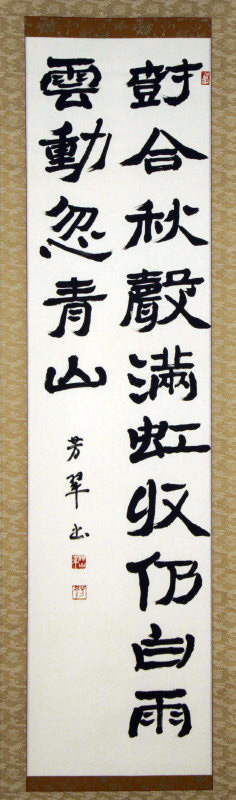 尌合秋聲滿虹收仍白雨
雲動忽青山
芳翠書